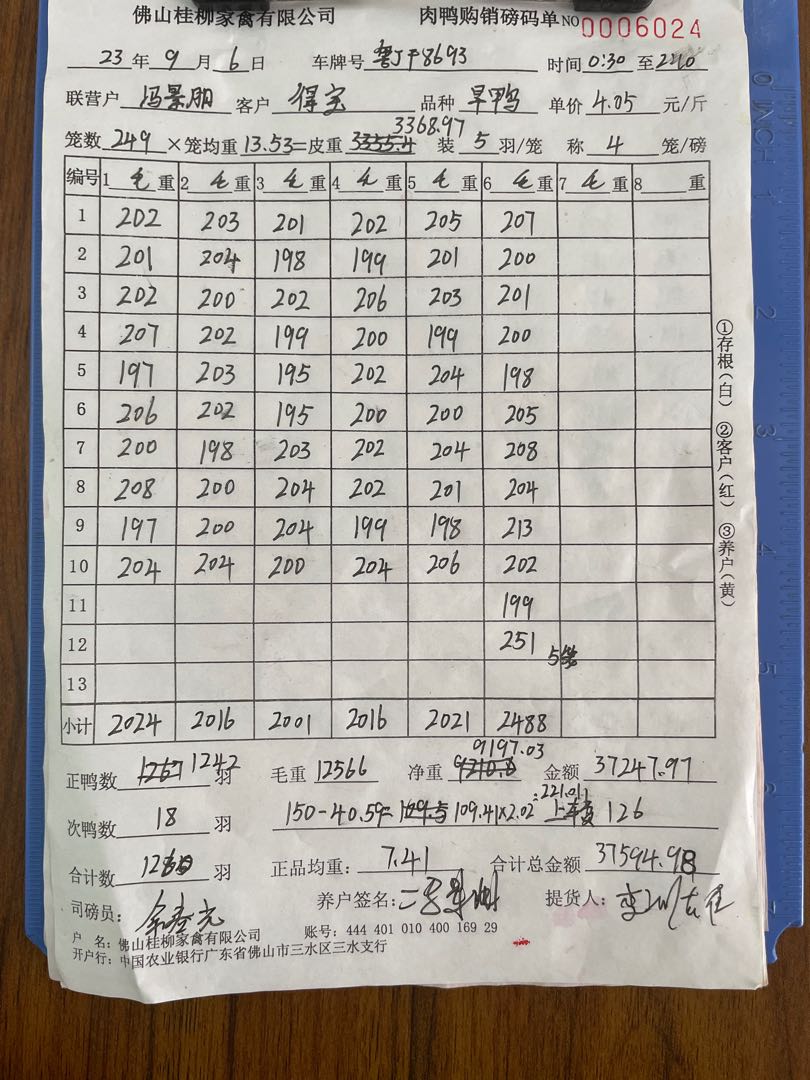 佛山桂柳家禽有限公司 肉鸭购销磅码单 NO 0006024
23 年 9 月 6 日 车牌号 时间 0:30 至
联营户 冯景朋 客户 得宝 品种 旱鸭 单价 4.05 元/斤
3368.97
笼数 249 ×笼均重 13.53 =皮重 3355.4 装 5 羽/笼 称 4 笼/磅
编号 1 毛 重 2 毛 重 3 毛 重 4 毛 重 5 毛 重 6 毛 重 7 毛 重 8 重
1 202 203 201 202 205 207
2 201 204 198 199 201 200
3 202 200 202 206 203 201
4 207 202 199 200 199 200
5 197 203 195 202 204 198
6 206 202 195 200 200 205
7 200 198 203 202 204 208
8 208 200 204 202 201 204
9 197 200 204 199 198 213
10 204 204 200 204 206 202
11 199
12 251 5笼
13
小计 2024 2016 2001 2016 2021 2488
9197.03
正鸭数 1267 1242 羽 毛重 12566 净重 金额 37247.97
=221.011
次鸭数 18 羽 150-40.59= 109.41×2.02 126
合计数 羽 正品均重: 7.41 合计总金额 37594.98
司磅员: 养户签名: 提货人:
户 名: 佛山桂柳家禽有限公司 账号: 444 401 010 400 169 29
开户行: 中国农业银行广东省佛山市三水区三水支行
①存根(白) ②客户(红) ③养户(黄)
0 INCH 1
2
3
4
5
7